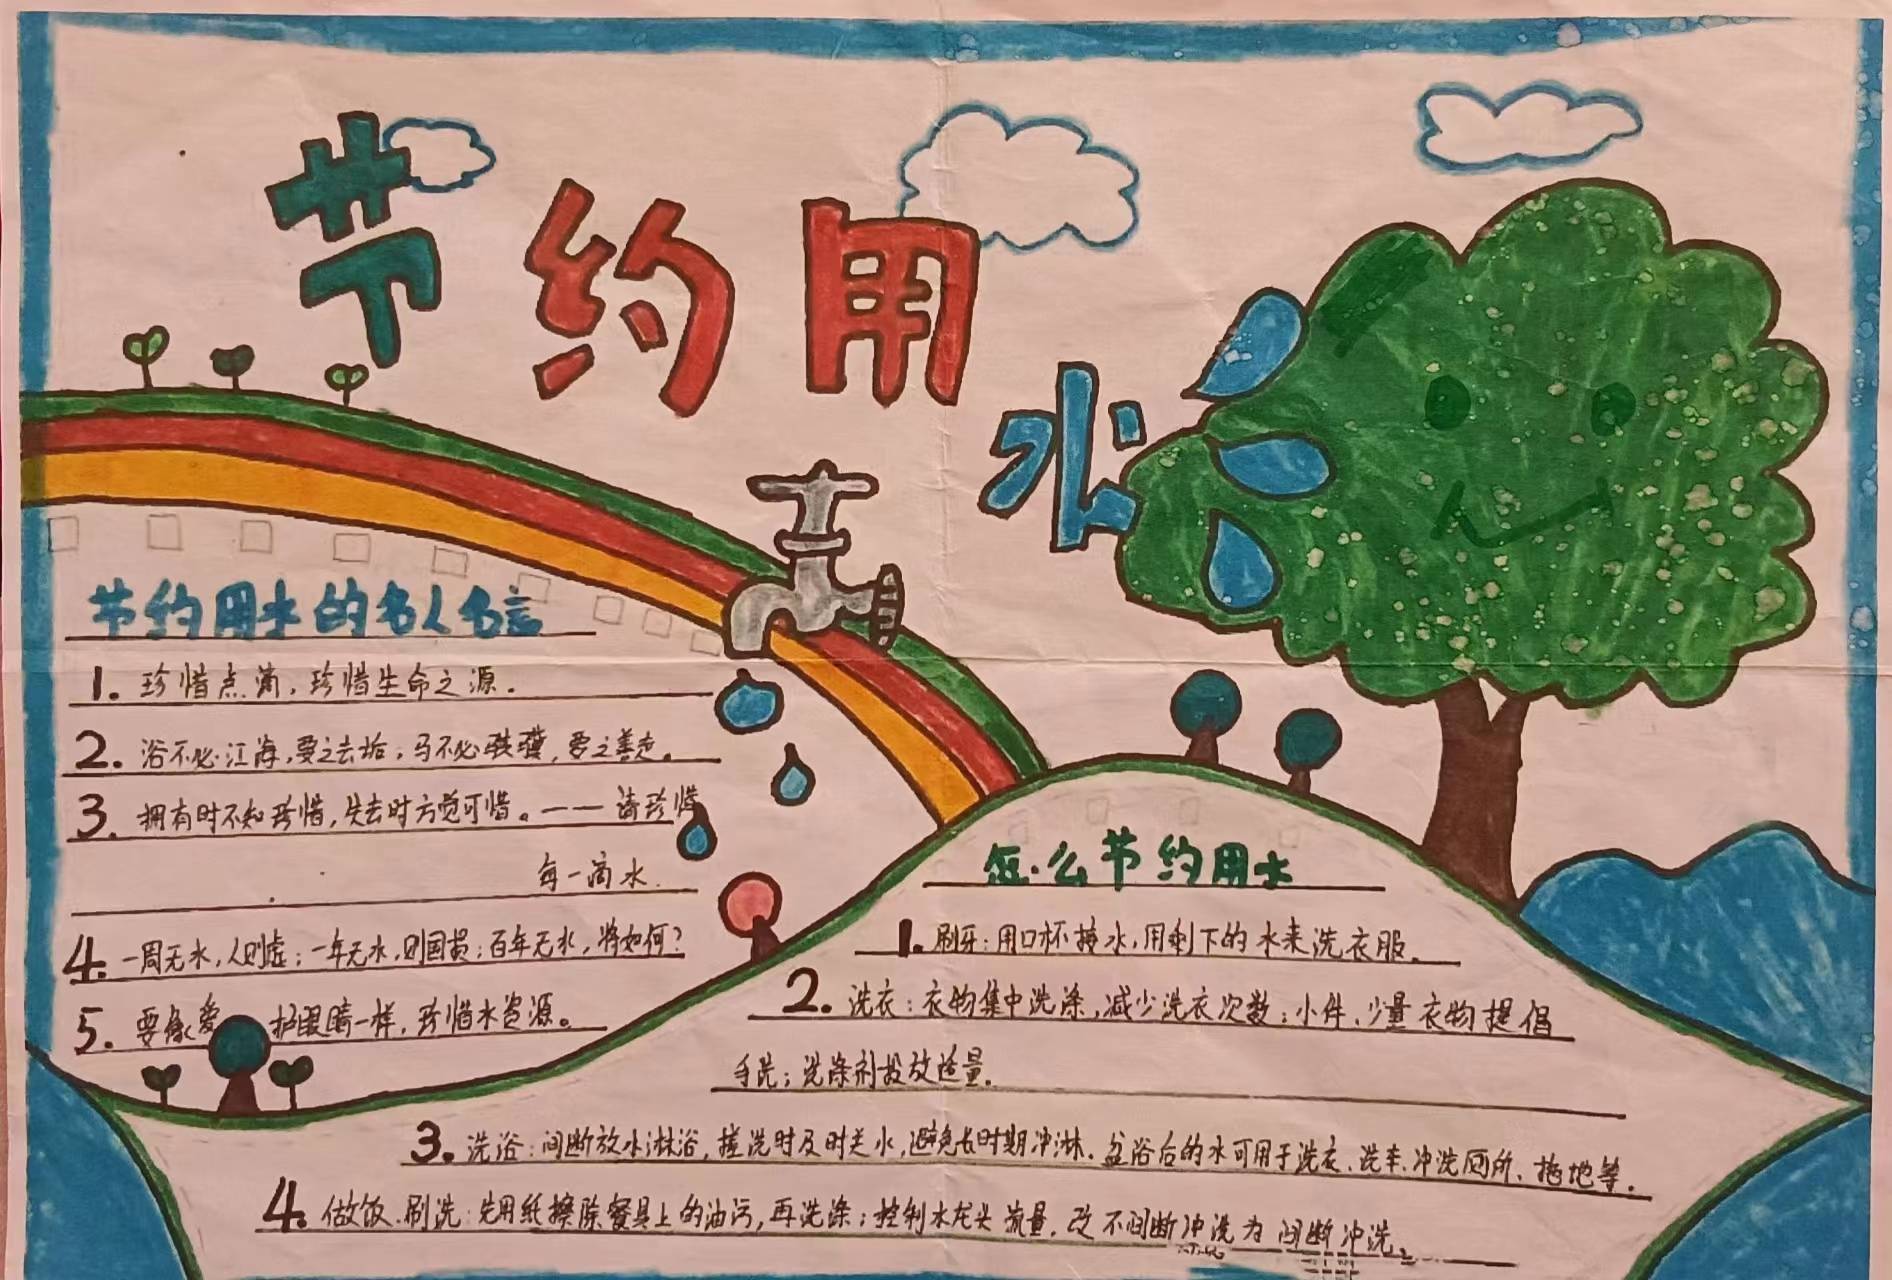 节约用水
节约用水的名人名言
1. 珍惜点滴，珍惜生命之源。
2. 浴不必江海，要之去垢；马不必骐骥，要之善走。
3. 拥有时不知珍惜，失去时方觉可惜。——请珍惜
每一滴水.
4. 一周无水，人则虚；一年无水，则国员；百年无水，将如何？
5. 要像爱护眼睛一样，珍惜水资源。
怎么节约用水
1. 刷牙：用口杯接水，用剩下的水来洗衣服.
2. 洗衣：衣物集中洗涤，减少洗衣次数；小件、少量衣物提倡
手洗；洗涤剂投放适量.
3. 洗浴：间断放水淋浴，搓洗时及时关水，避免长时期冲淋.盆浴后的水可用于洗衣、洗车、冲洗厕所、拖地等.
4. 做饭、刷洗：先用纸擦除餐具上的油污，再洗涤；控制水龙头流量，改不间断冲洗为间断冲洗。